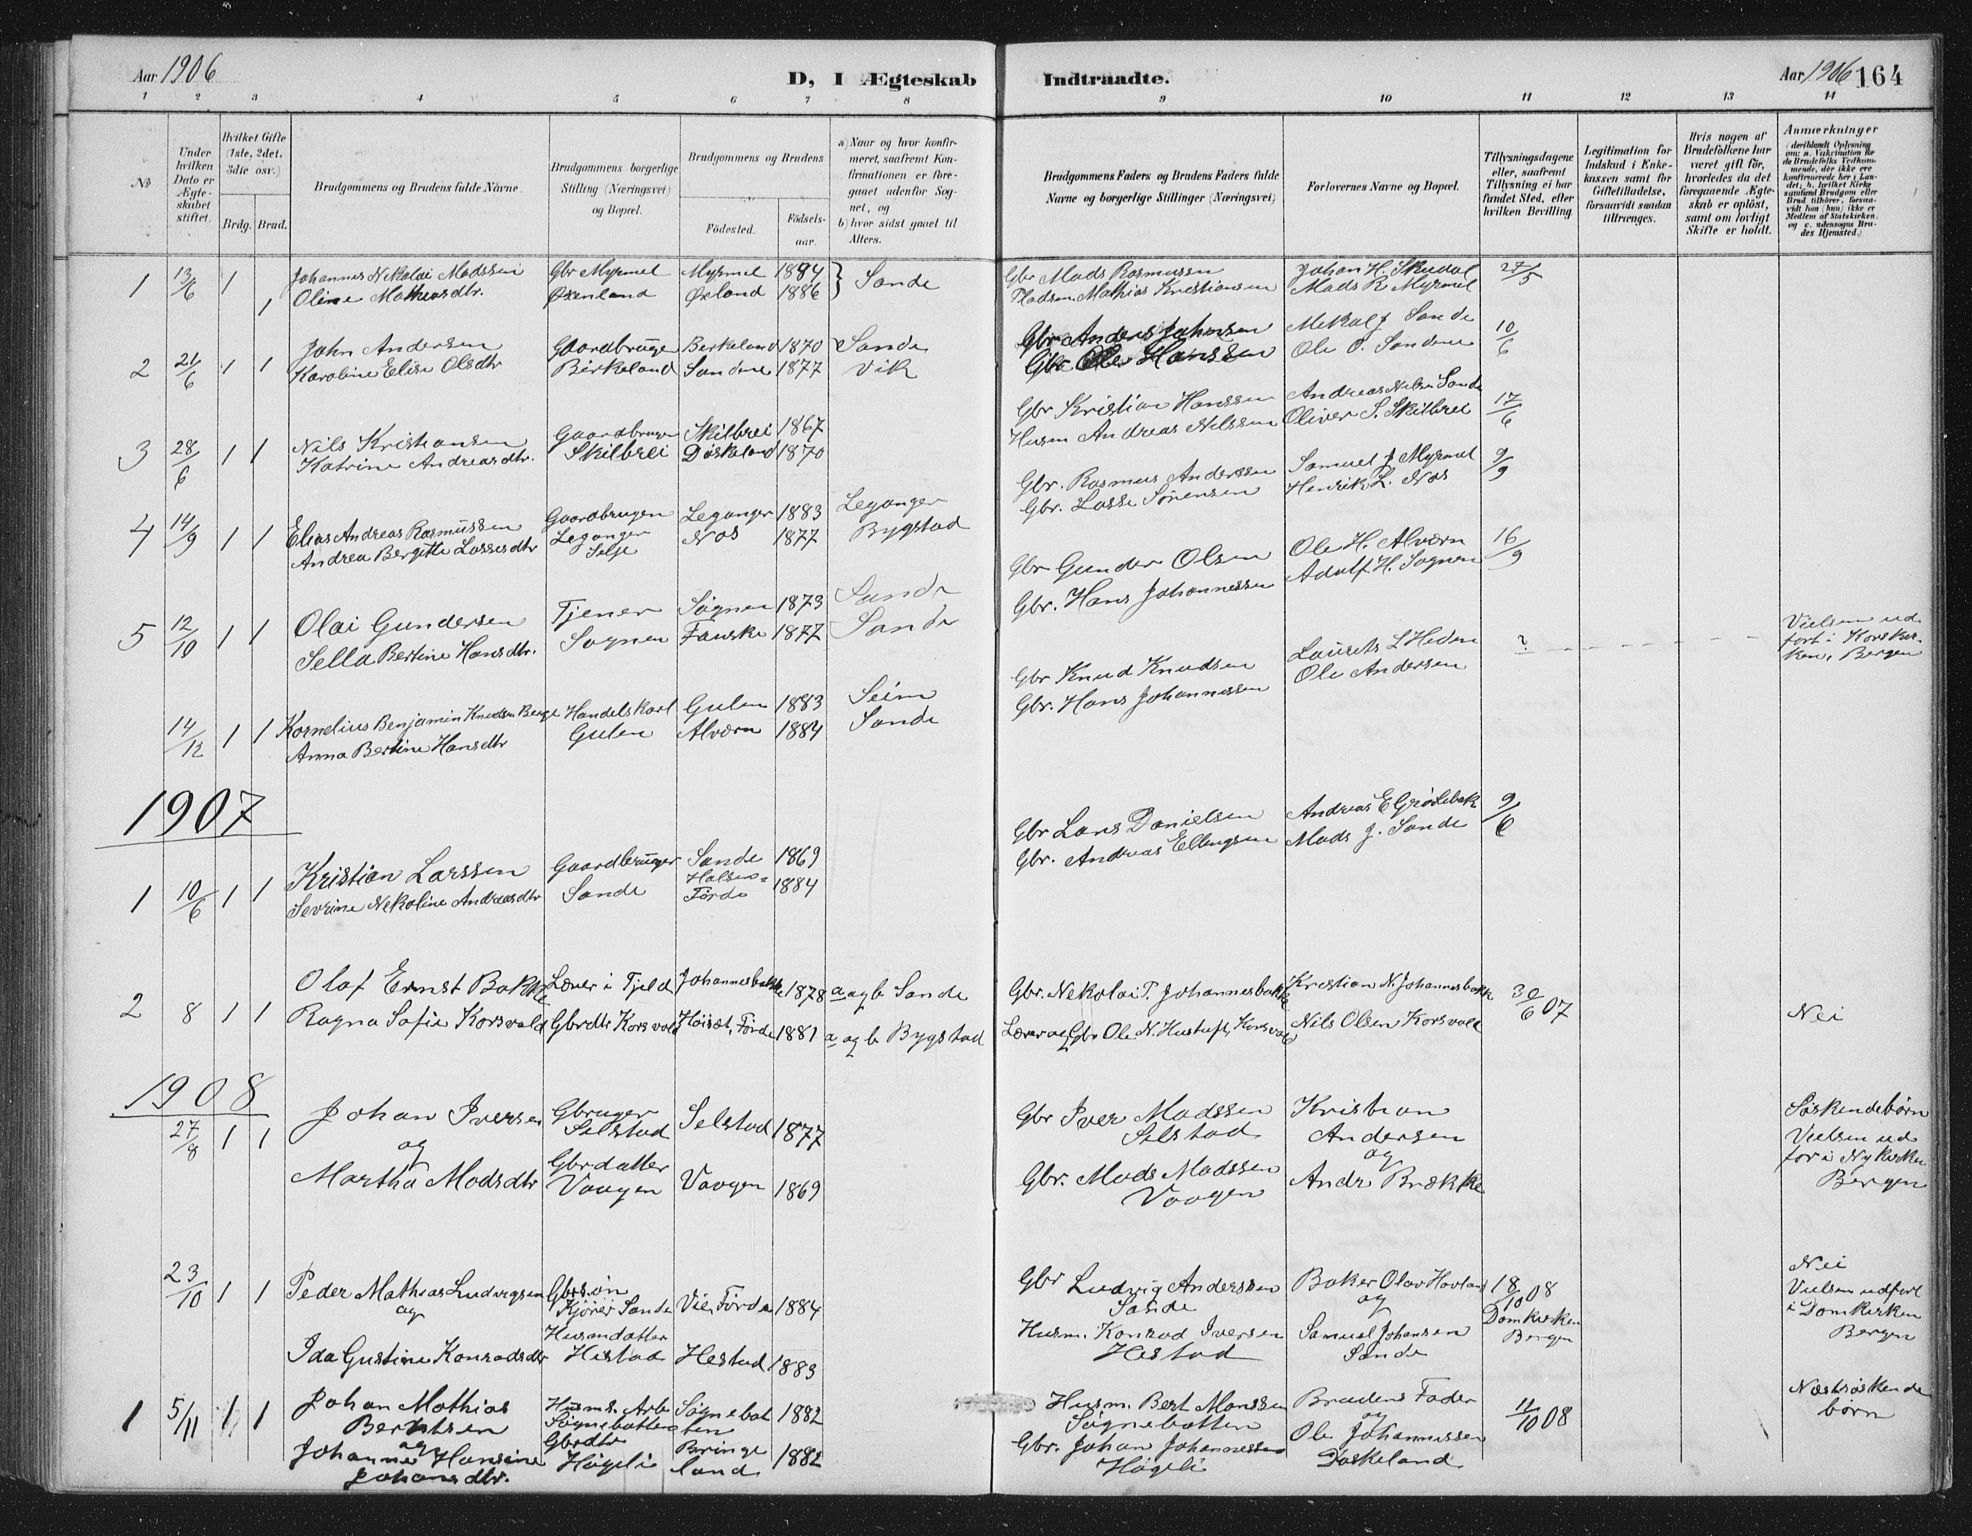 Aar 1906
D, I Ægteskab Indtraadte.
Aar 1906 164
1 2 3 4 5 6 7 8 9 10 11 12 13 14
No
Under hvilken Dato er Ægteskabet stiftet.
Hvilket Gifte (1ste, 2det, 3die osv.)
Brdg. Brud.
Brudgommens og Brudens fulde Navne.
Brudgommens borgerlige Stilling (Næringsvei) og Bopæl.
Brudgommens og Brudens
Fødested.
Fødselsaar.
a) Naar og hvor konfirmeret, saafremt Konfirmationen er foregaaet udenfor Sognet, og
b) hvor sidst gaaet til Alters.
Brudgommens Faders og Brudens Faders fulde Navne og borgerlige Stillinger (Næringsvei)
Forlovernes Navne og Bopæl.
Tillysningsdagene eller, saafremt Tillysning ei har fundet Sted, efter hvilken Bevilling.
Legitimation for Indskud i Enkekassen samt for Giftetilladelse, forsaavidt saadan tiltrænges.
Hvis nogen af Brudefolkene har været gift før, hvorledes da det foregaaende Ægteskab er opløst, samt om lovligt Skifte er holdt.
Anmærkninger (deriblandt Oplysning om: a. Vakcination for de Brudefolks Vedkommende, der ikke ere konfirmerede her i Landet; b. hvilket Kirkesamfund Brudgom eller Brud tilhører, forsaavidt han (hun) ikke er Medlem af Statskirken, og c. udensogns Brudes Hjemsted.)
1 13/6 1 Johannes Nikolai Madssen Gbr Myrmel Myrmel 1884 Sande Gbr Mads Rasmussen Johan H. Skudal 27/5
1 Oline Mathiasdtr. Øxenland Øxland 1886 Pladsm. Mathias Kristiansen Mads R Myrmel
2 21/6 1 1 John Andersen Gaardbruger Berkeland 1870 Sande Gbr Anders Johnsen Mekal J Sande 10/6
Karoline Elise Olsdtr Birkeland Sandne 1877 Vik Gbr Ole Hanssen Ole O. Sandne
3 28/6 1 1 Nils Kristiansen Gaardbruger Skilbrei 1867 Gbr Kristian Hanssen Andreas Nilsen Sande 17/6
Katrine Andreasdtr. Skilbrei Døskeland 1870 Husm Andreas Nilssen Oliver S. Skilbrei
4 14/9 1 1 Elias Andreas Rasmussen Gaardbrugen Leganger 1883 Leganger Gbr. Rasmus Anderssen Samuel J Myrmel 9/9
Andrea Bergitte Lassesdtr Leganger Selje Nos 1877 Bygstad Gbr. Lasse Sørensen Henrik L. Nos
5 12/10 1 1 Olai Gundersen Tjener Søgnen 1873 Sande Gbr Gunder Olsen Ole H. Alværn 16/9
Sella Bertine Hansdtr. Sognen Fauske 1877 Sande Gbr. Hans Johannessen Adolf H. Sognen
14/12 1 1 Kornelius Benjamin Knudsen Berge Handelskarl Gulen 1883 Seim Gbr Knud Knudsen Laurits L Heden ? Vielsen udført i Korskirken, Bergen
Anna Bertine Hansdtr Gulen Alværn 1884 Sande Gbr. Hans Johannessen Ole Andersen
1907
1 10/6 1 1 Kristian Larssen Gaardbruger Sande 1869 Gbr Lars Danielsen Andreas E Grødebak 9/6
Sevrine Nekoline Andreasdtr Sande Halsen= Førde 1884 Gbr. Andreas Ellingsen Mads J. Sande
2 8 1 1 Olaf Ernst Bakke Lærer i Fjeld Johannesbakke 1878 a og b Sande Gbr. Nekolai T. Johannesbakke Kristian N. Johannesbakk 30/6 07
Ragna Sofie Korsvold Gbrdtr Korsvold Høisæt, Førde 1881 a og b Bygstad Lærer og Gbr Ole N. Hustuft, Korsvold Nils Olsen Korsvold Nei
1908
27/8 1 1 Johan Iversen Gbruger Selstad Selstad 1877 Gbr Iver Madssen Selstad Kristian Andersen Søskendebørn
og og Vielsen udfør i Nykirken
Martha Madsdtr Gbrdatter Vaagen Vaagen 1869 Gbr. Mads Madssen Vaagen Andr Brække Bergen
23/10 1 1 Peder Mathias Ludvigsen Gbrsøn Kjører Sande Vie, Førde 1884 Gbr Ludvig Anderssen Sande Baker Olav Havland 18/10 08 Nei
og og Domkirken Bergen Vielsen udført i Domkirken Bergen
Ida Gustine Konradsdtr Husmdatter Hestad Hestad 1883 Husm. Konrad Iversen Hestad Samuel Johansen Sande
1 5/11 1 1 Johan Mathias Berntsen Husms. Arb Søgnebotten Søgnebotten 1882 Husm. Bert Monssen Søgnebotten Brudens Fader 11/10 08 Næstsøskendebørn
og og
Johanne Hansine Johansdtr. Gbrdtr Høgeli Bringeland 1882 Gbr. Johan Johannessen Høgeli Ole Johannessen Døskeland